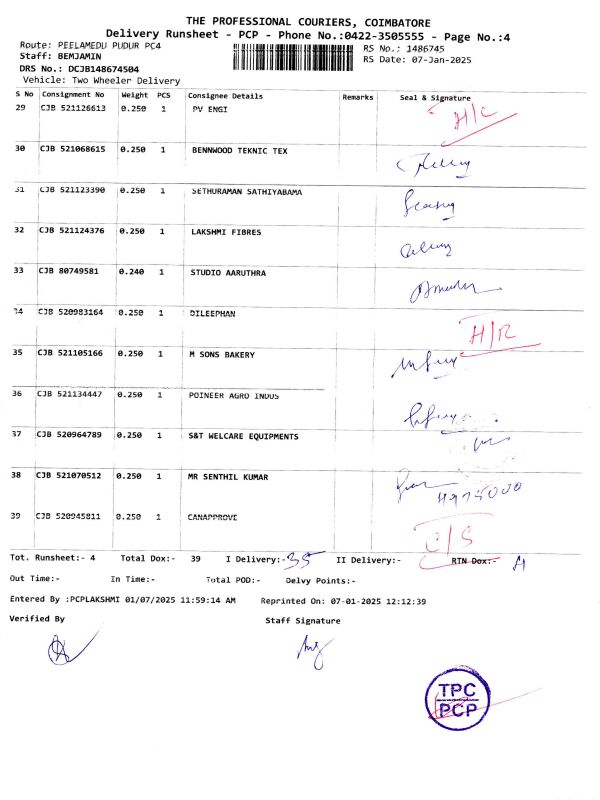 THE PROFESSIONAL COURIERS, COIMBATORE
Delivery Runsheet - PCP - Phone No.:0422-3505555 - Page No.:4
Route: PEELAMEDU PUDUR PC4 RS No.: 1486745
Staff: BEMJAMIN RS Date: 07-Jan-2025
DRS No.: DCJB148674504
Vehicle: Two Wheeler Delivery
S No Consignment No Weight PCS Consignee Details Remarks Seal & Signature
29 CJB 521126613 0.250 1 PV ENGI H/C
30 CJB 521068615 0.250 1 BENNWOOD TEKNIC TEX
31 CJB 521123390 0.250 1 SETHURAMAN SATHIYABAMA
32 CJB 521124376 0.250 1 LAKSHMI FIBRES
33 CJB 80749581 0.240 1 STUDIO AARUTHRA
34 CJB 520983164 0.250 1 DILEEPHAN H/R
35 CJB 521105166 0.250 1 M SONS BAKERY
36 CJB 521134447 0.250 1 POINEER AGRO INDUS
37 CJB 520964789 0.250 1 S&T WELCARE EQUIPMENTS
38 CJB 521070512 0.250 1 MR SENTHIL KUMAR
39 CJB 520945811 0.250 1 CANAPPROVE C/S
Tot. Runsheet:- 4 Total Dox:- 39 I Delivery:- 35 II Delivery:- RTN Dox:-
Out Time:- In Time:- Total POD:- Delvy Points:-
Entered By :PCPLAKSHMI 01/07/2025 11:59:14 AM Reprinted On: 07-01-2025 12:12:39
Verified By Staff Signature
TPC
PCP